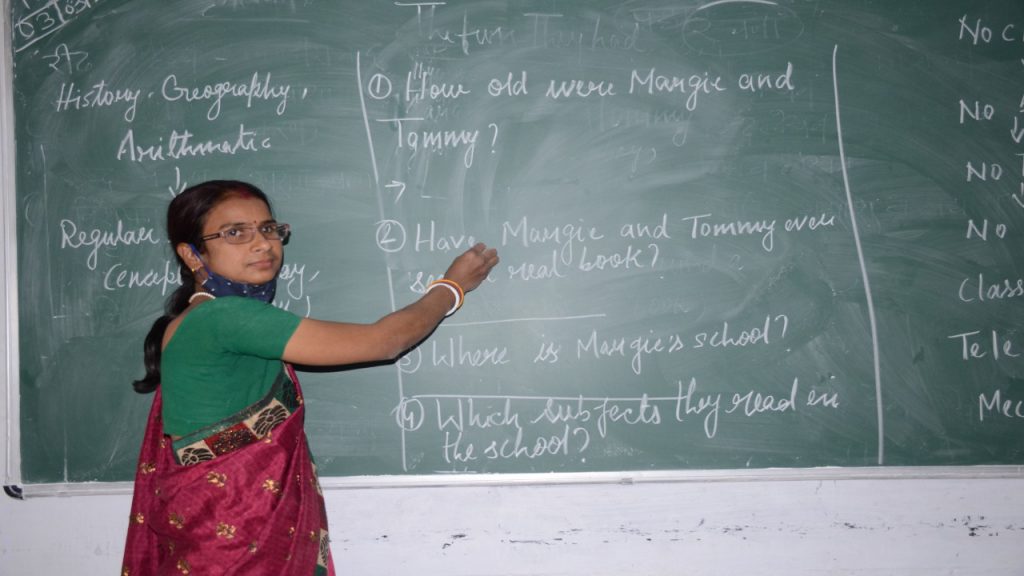 The fun They had
History, Geography,
Arithmatic
Regular
① How old were Margie and
Tommy?
→ –
② Have Margie and Tommy ever
real book?
Where is Margie's school?
④ Which subjects they read in
the school?
No
No
No
No
Class
Tele